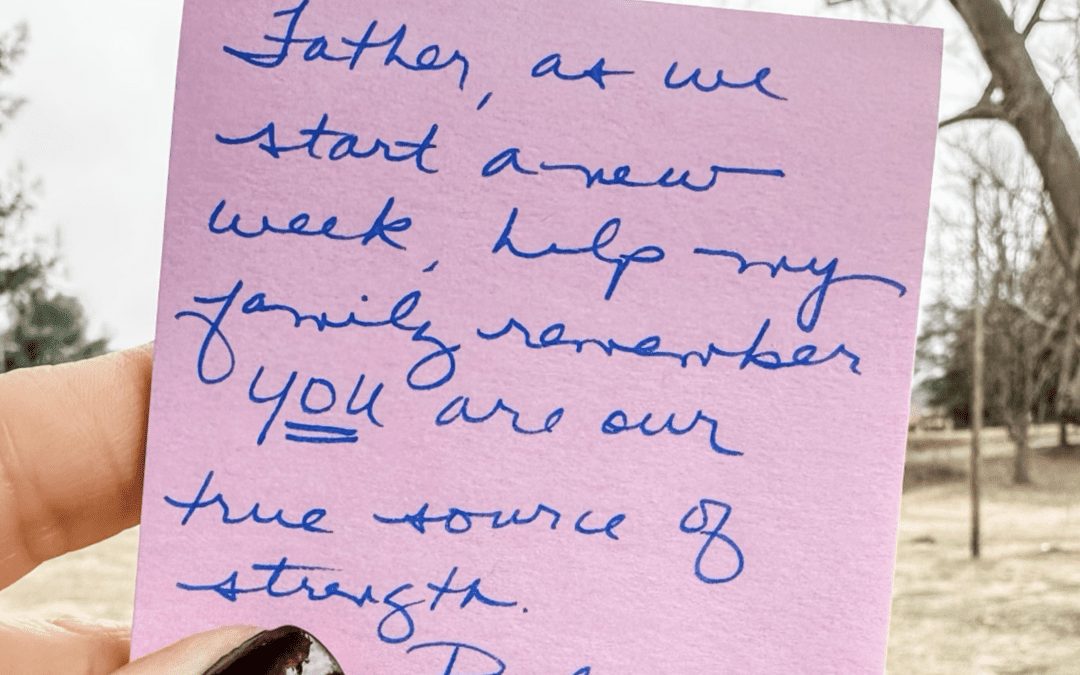 Father, as we
start a new
week, help my
family remember
YOU are our
true source of
strength.